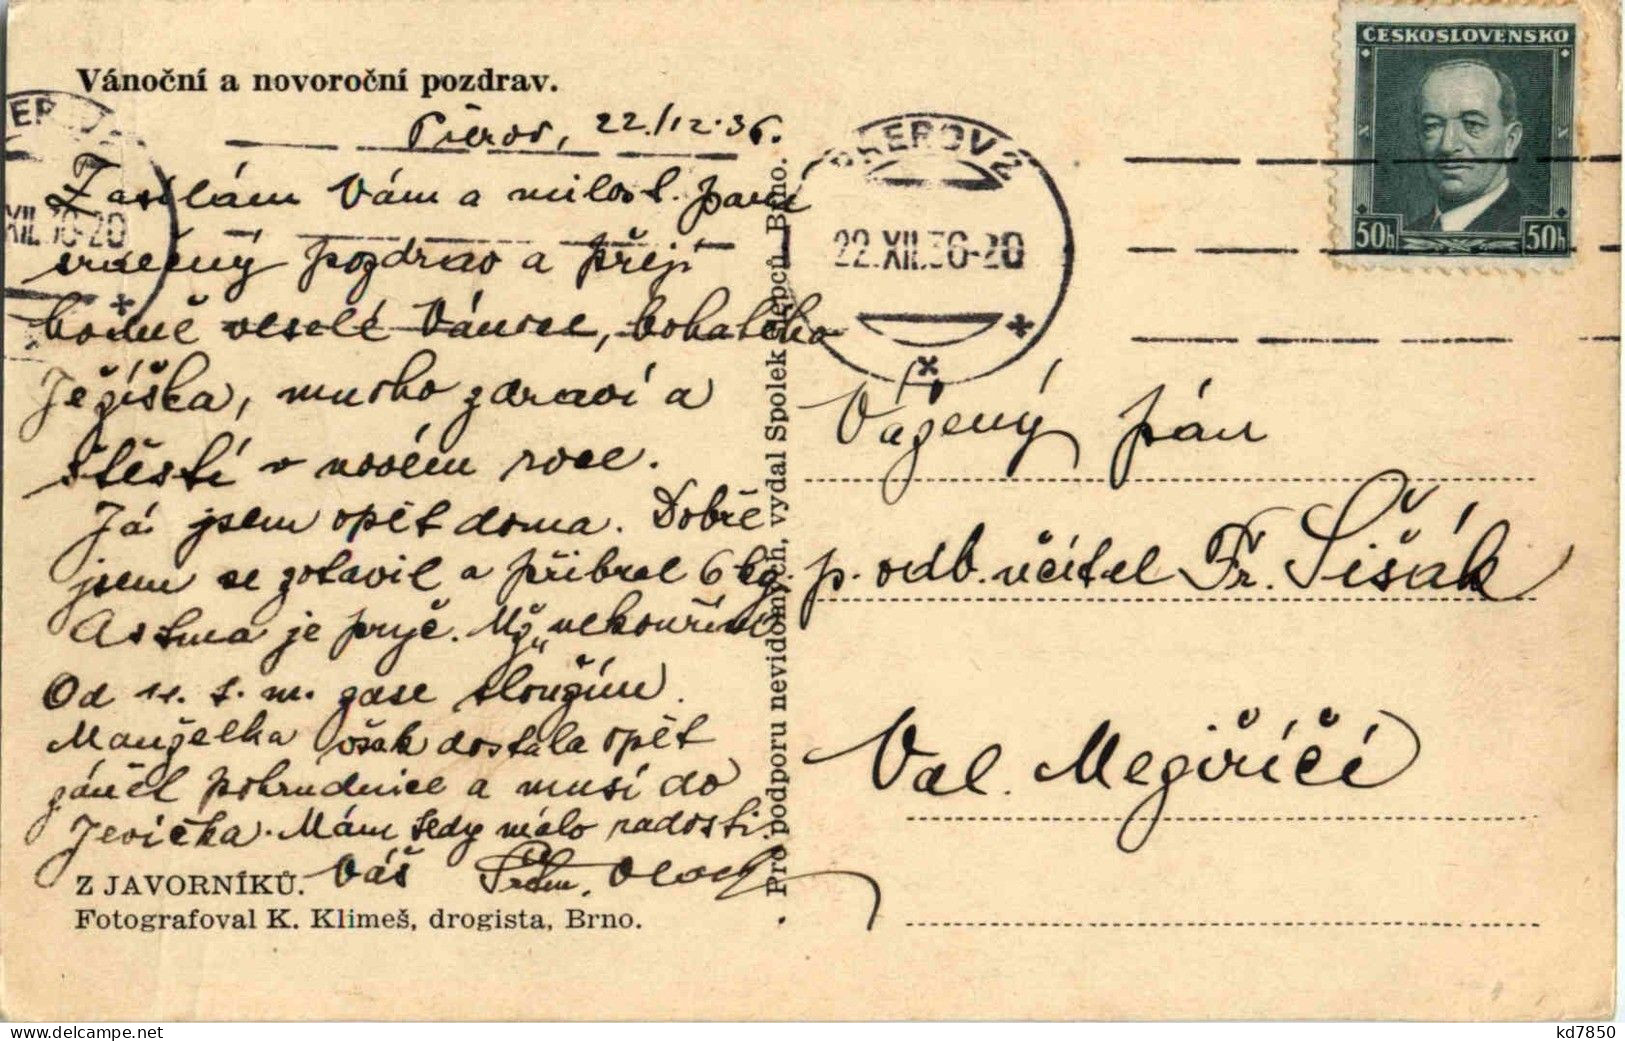 Vánoční a novoroční pozdrav.
Přerov, 22./12.36.
Zasílám Vám a milost. paní
srdečný pozdrav a přeji
hodně veselé Vánoce, bohatého
Ježíška, mnoho zdraví a
štěstí v novém roce.
Já jsem opět doma. Dobře
jsem se zotavil a přibral 6 kg.
Astma je pryč. Již nekouřím
Od 11. t. m. zase sloužím.
Manželka však dostala opět
zánět pohrudnice a musí do
Jevíčka. Mám tedy málo radosti.
Váš
Z JAVORNÍKŮ.
Fotografoval K. Klimeš, drogista, Brno.
Pro podporu nevidomých, vydal Spolek slepců, Brno.
PŘEROV 2
22.XII.36-20
XII.36-20
ČESKOSLOVENSKO
50h 50h
Vážený pán
p. odb. učitel Fr. Šišák
Val. Meziříčí
kd7850